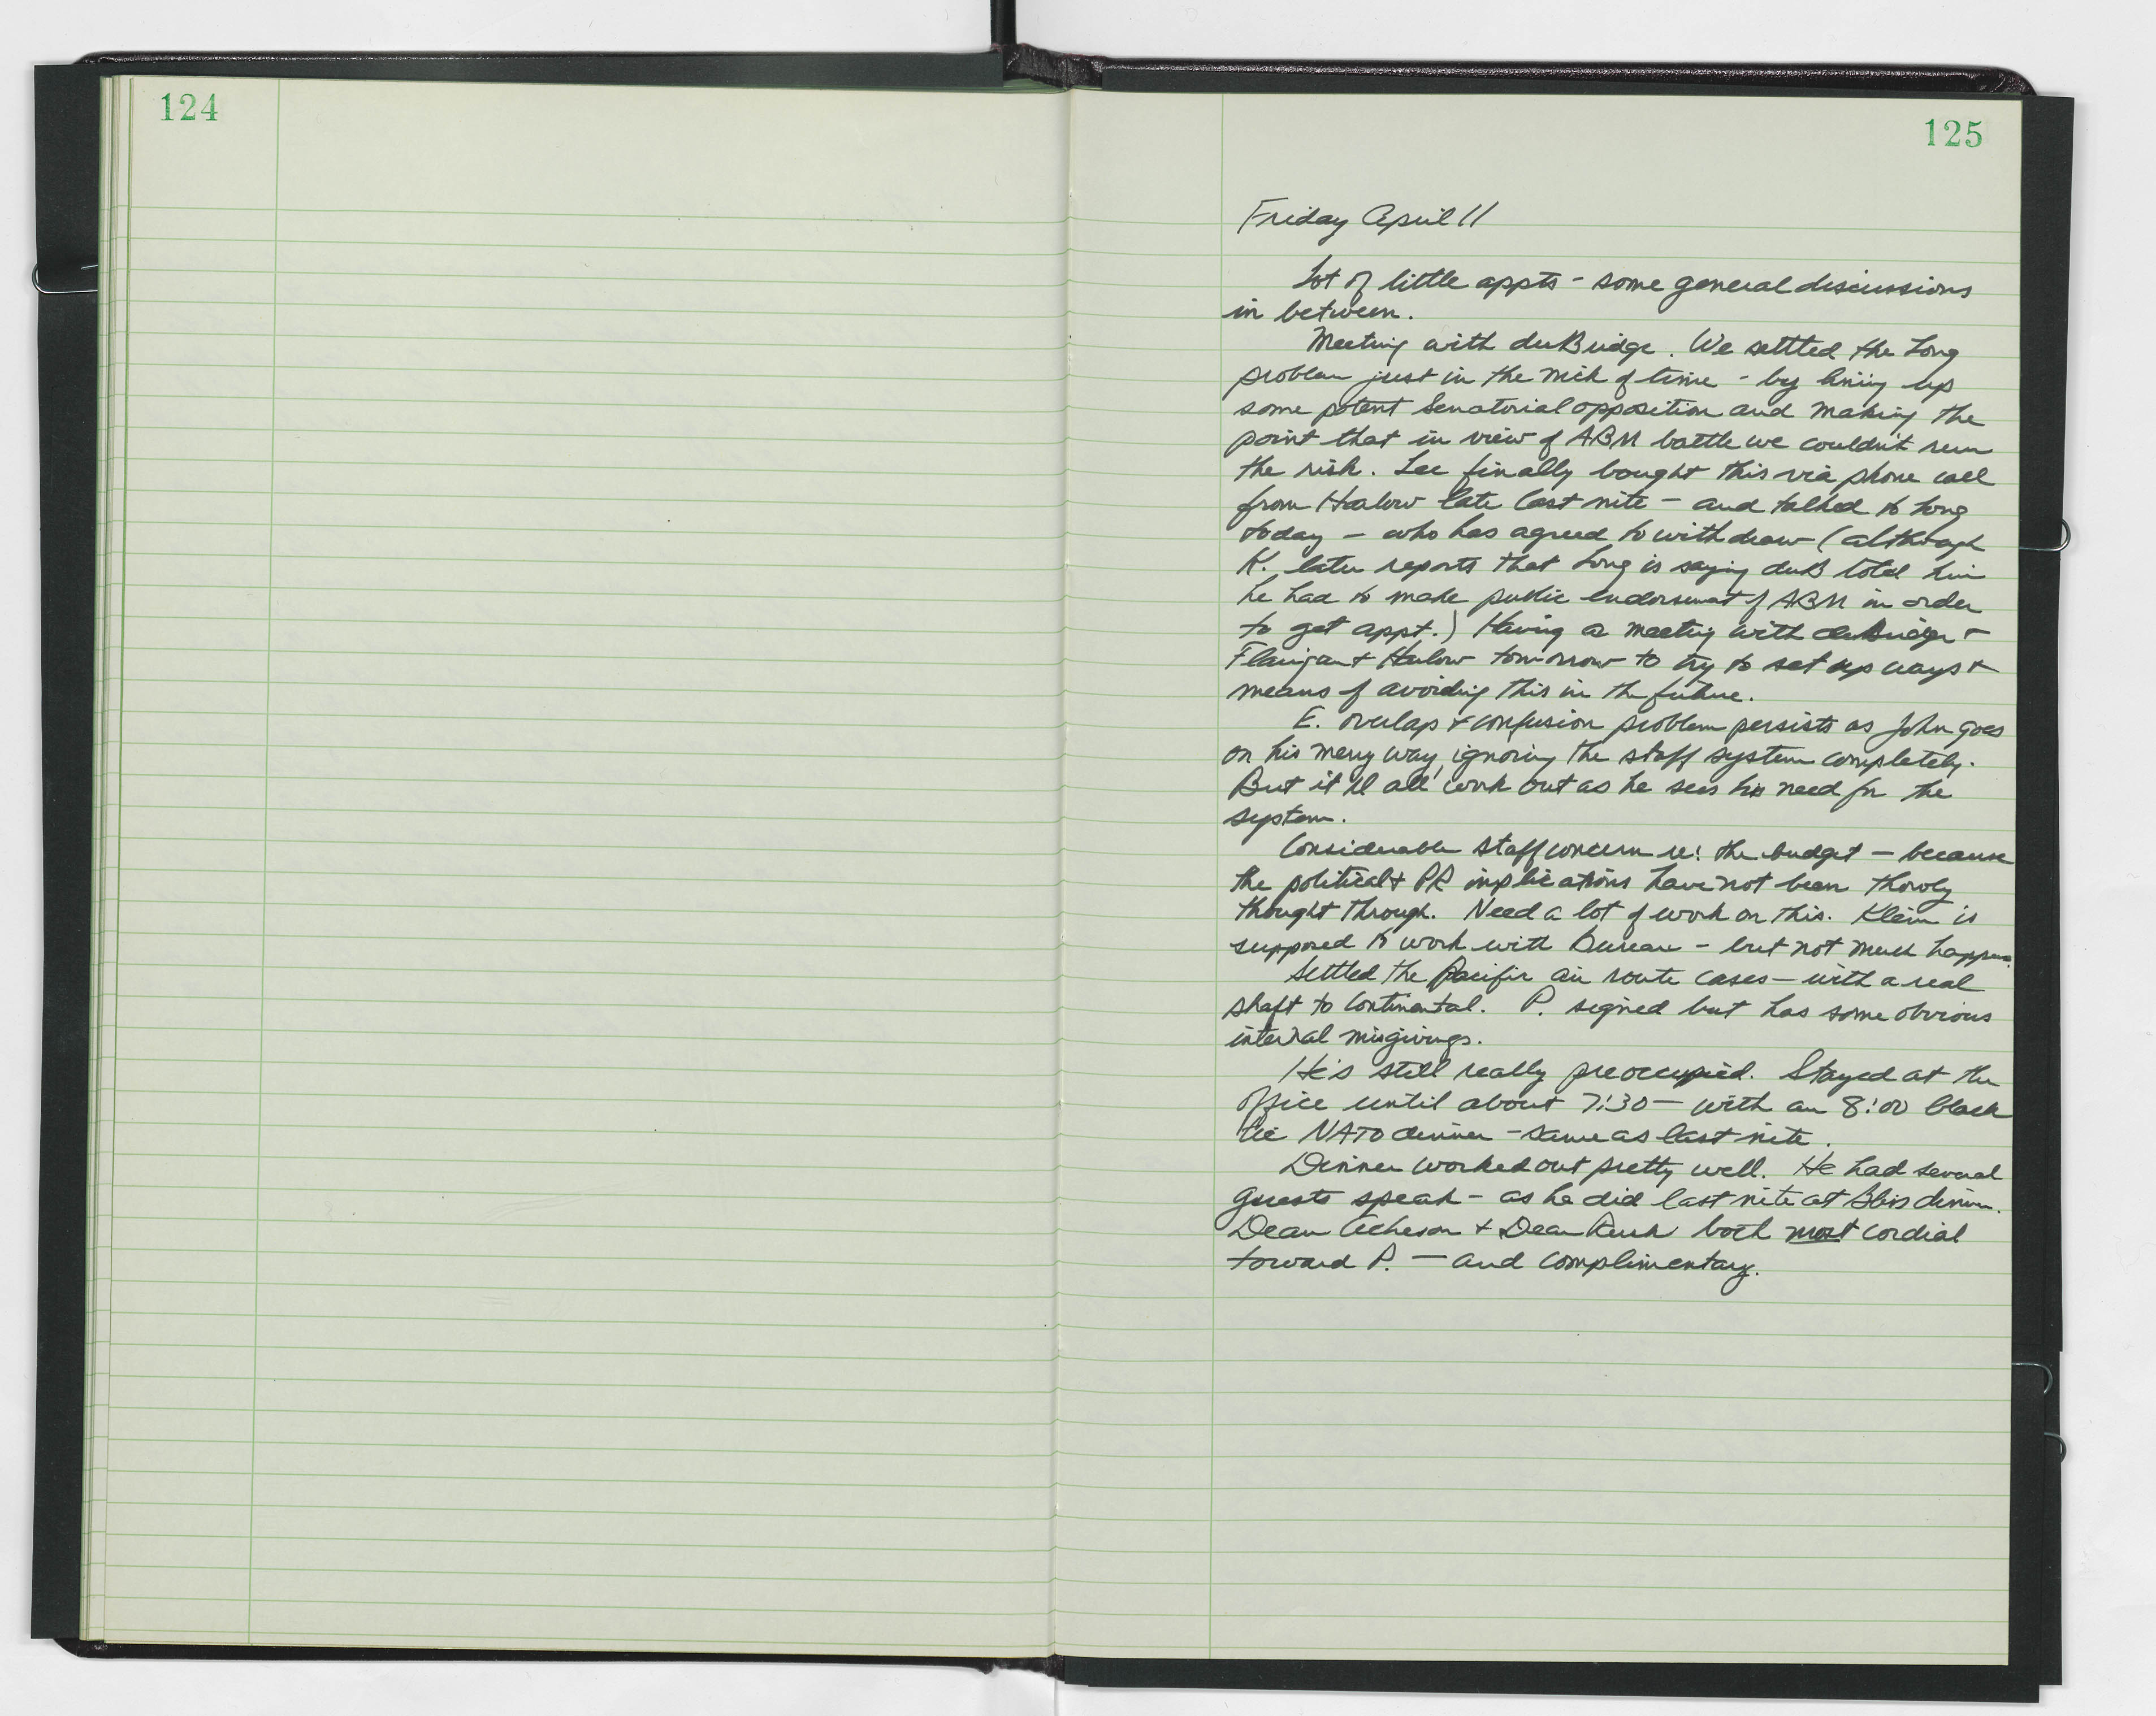 124
125
Friday April 11
Lot of little appts - some general discussions
in between.
Meeting with duBridge. We settled the Long
problem just in the nick of time - by lining up
some potent Senatorial opposition and making the
point that in view of ABM battle we couldn't run
the risk. Lee finally bought this via phone call
from Harlow late last nite - and talked to Long
today - who has agreed to withdraw (although
K. later reports that Long is saying duB told him
he had to make public endorsement of ABM in order
to get appt.) Having a meeting with duBridge +
Flanigan + Harlow tomorrow to try to set up ways +
means of avoiding this in the future.
E. overlap + confusion problem persists as John goes
on his merry way, ignoring the staff system completely.
But it'll all work out as he sees his need for the
system.
Considerable staff concern re: the budget - because
the political + PR implications have not been thoroly
thought through. Need a lot of work on this. Klein is
supposed to work with Bureau - but not much happens.
Settled the Pacific air route cases - with a real
shaft to Continental. P. signed but has some obvious
internal misgivings.
He's still really preoccupied. Stayed at the
office until about 7:30 - with an 8:00 black
tie NATO dinner - same as last nite.
Dinner worked out pretty well. He had several
guests speak - as he did last nite at dinner.
Dean Acheson + Dean Rusk both most cordial
toward P. - and complimentary.